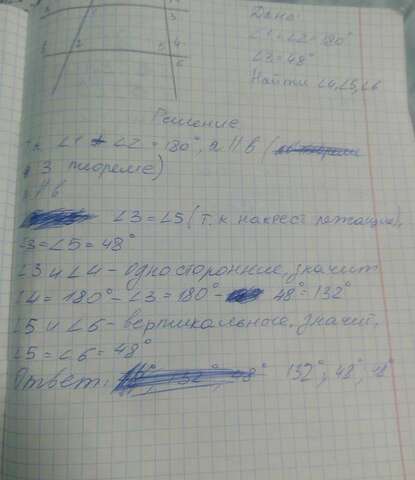 1
3
2 5 4
6
Дано:
∠1 = ∠2 = 180°
∠3 = 48°
Найти ∠4, ∠5, ∠6
Решение
т.к ∠1 + ∠2 = 180°, a || b (
3 теореме)
|| b
∠3 = ∠5 (т.к накрест лежащие),
∠3 = ∠5 = 48°
∠3 и ∠4 - односторонние, значит
∠4 = 180° - ∠3 = 180° - 48° = 132°
∠5 и ∠6 - вертикальное, значит,
∠5 = ∠6 = 48°
Ответ: 132°; 48°; 48°